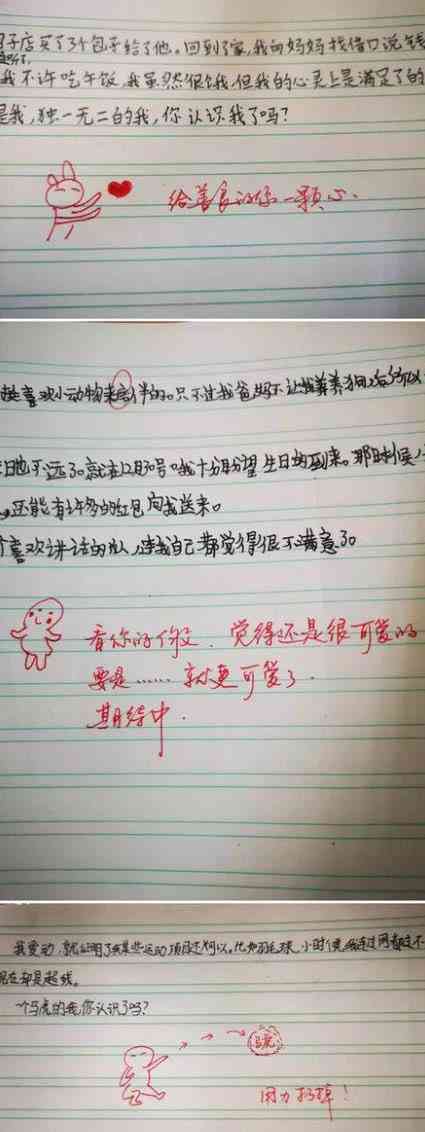 子店买了3个包子给了他。回到了家,我的妈妈找借口说钱
我不许吃午饭,我虽然很饿,但我的心灵上是满足了的
是我,独一无二的我,你认识我了吗?
给善良的你一颗心.
喜欢小动物来陪伴的。只不过我爸妈不让我养狗,
日也不远了。就在12月30号。我十分期望生日的到来。那时候
还能有许多的红包向我送来。
喜欢讲话的人,连我自己都觉得很不满意了。
看你的作文.觉得还是很可爱的
要是……就更可爱了.
期待中.
我爱动,就证明了我某些运动项目还可以。比如羽毛球,小时候我连过网都过不
现在却是超线。
个马虎的我,你认识了吗?
马虎
用力扔掉!